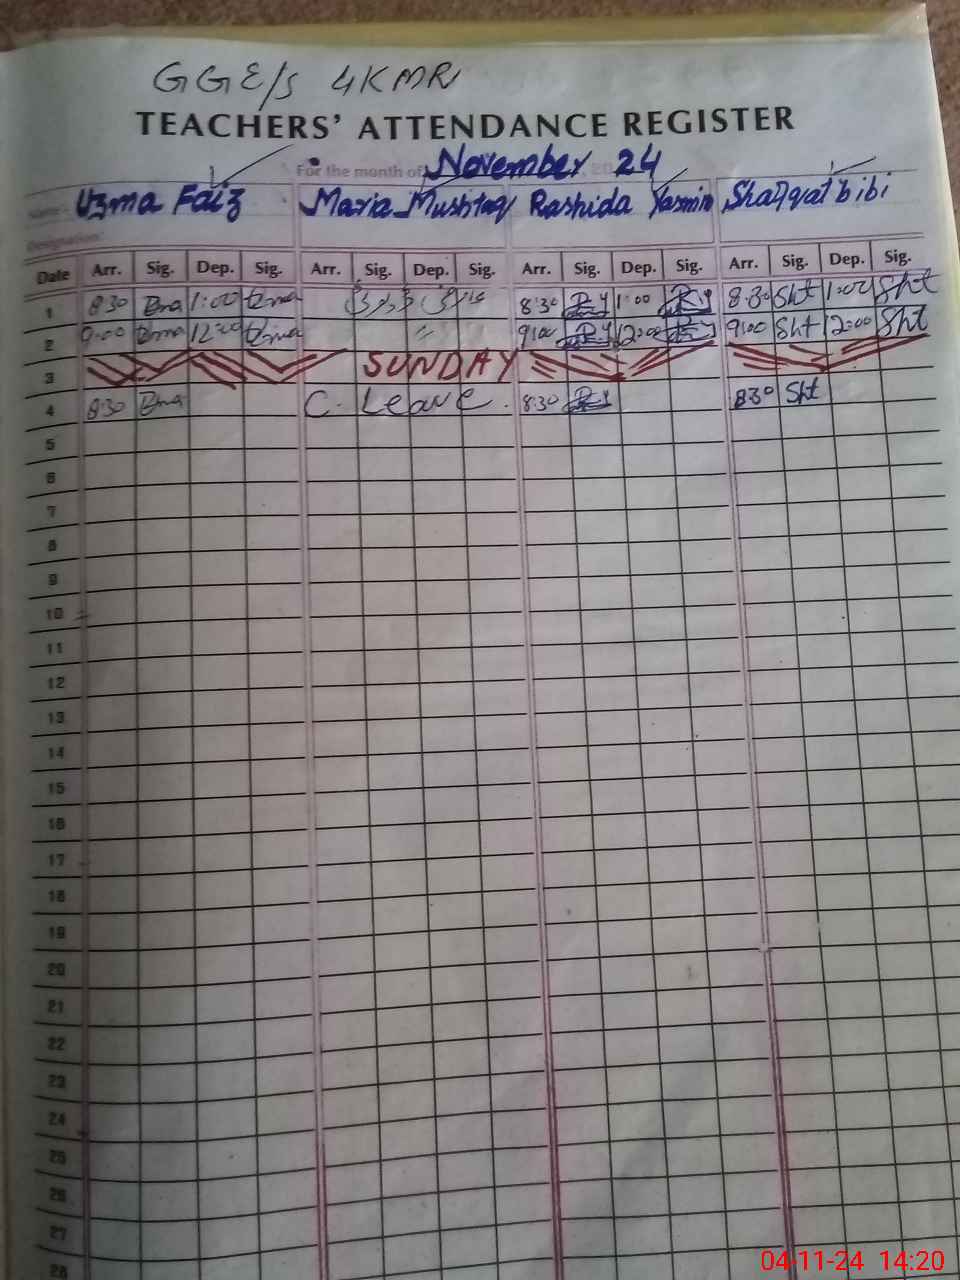 GGE/S 4KMR
TEACHERS' ATTENDANCE REGISTER
For the month of November 2024
Name:- Uzma Faiz Maria Mushtaq Rashida Yasmin Shafqat bibi
Designation:
Date Arr. Sig. Dep. Sig. Arr. Sig. Dep. Sig. Arr. Sig. Dep. Sig. Arr. Sig. Dep. Sig.
1 8:30 1:00 8:30 R.Y 1:00 R.Y 8:30 Sht 1:00 Sht
2 9:00 12:00 " 9:00 R.Y 12:00 R.Y 9:00 Sht 12:00 Sht
3 SUNDAY
4 8:30 C. Leave. 8:30 R.Y 8:30 Sht
5
6
7
8
9
10
11
12
13
14
15
16
17
18
19
20
21
22
23
24
25
26
27
28
04-11-24 14:20